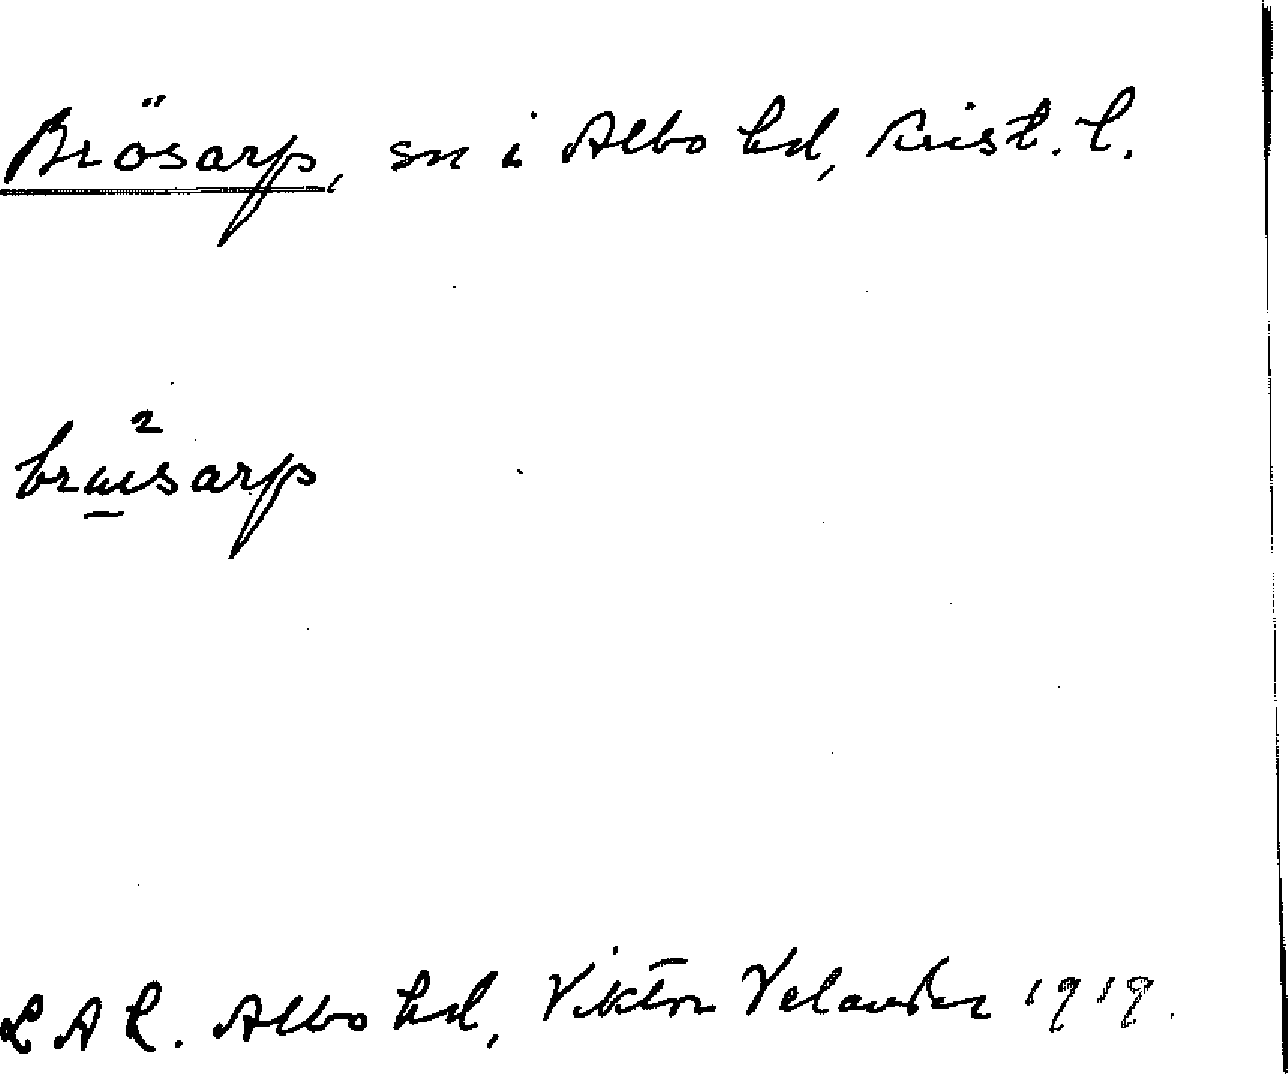 Brösarp, sn i Albo hd, Krist. l.
bræ²sarp
LAL. Albo hd, Viktor Velander 1919.